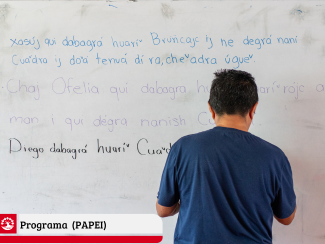 qui dabagrá huariˇ Bruncajc ij ne degrá naní
Cuaˇdra ij dota tenuá di ra, cheˇadra úgueˇ.
Chaj Otelia qui dabagra hu
man i qui dégra nanish
Diego dabagrá huariˇ Cuaˇd
Programa (PAPEI)